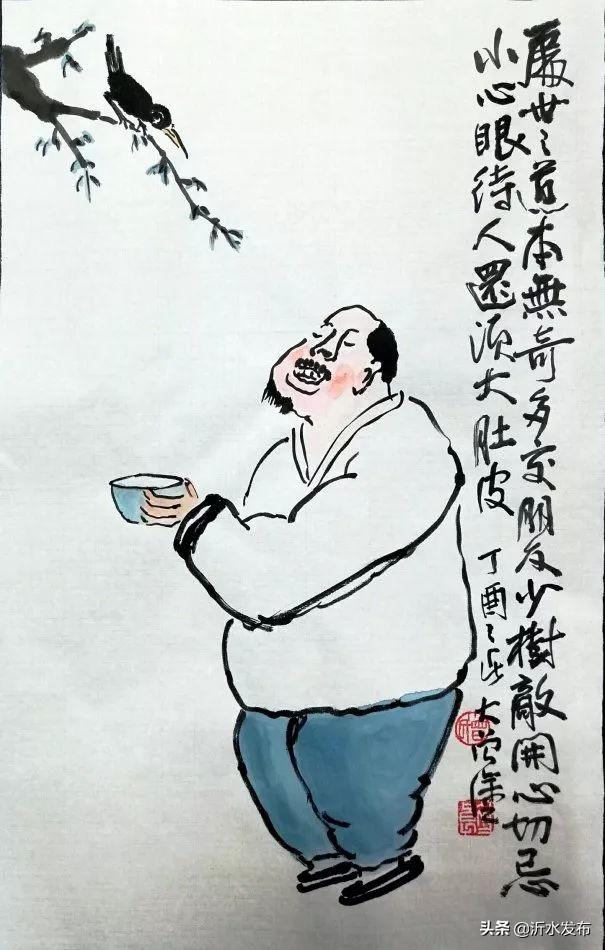 處世之道本無奇多交朋友少樹敵開心切忌
小心眼待人還須大肚皮
丁酉
头条 @沂水发布